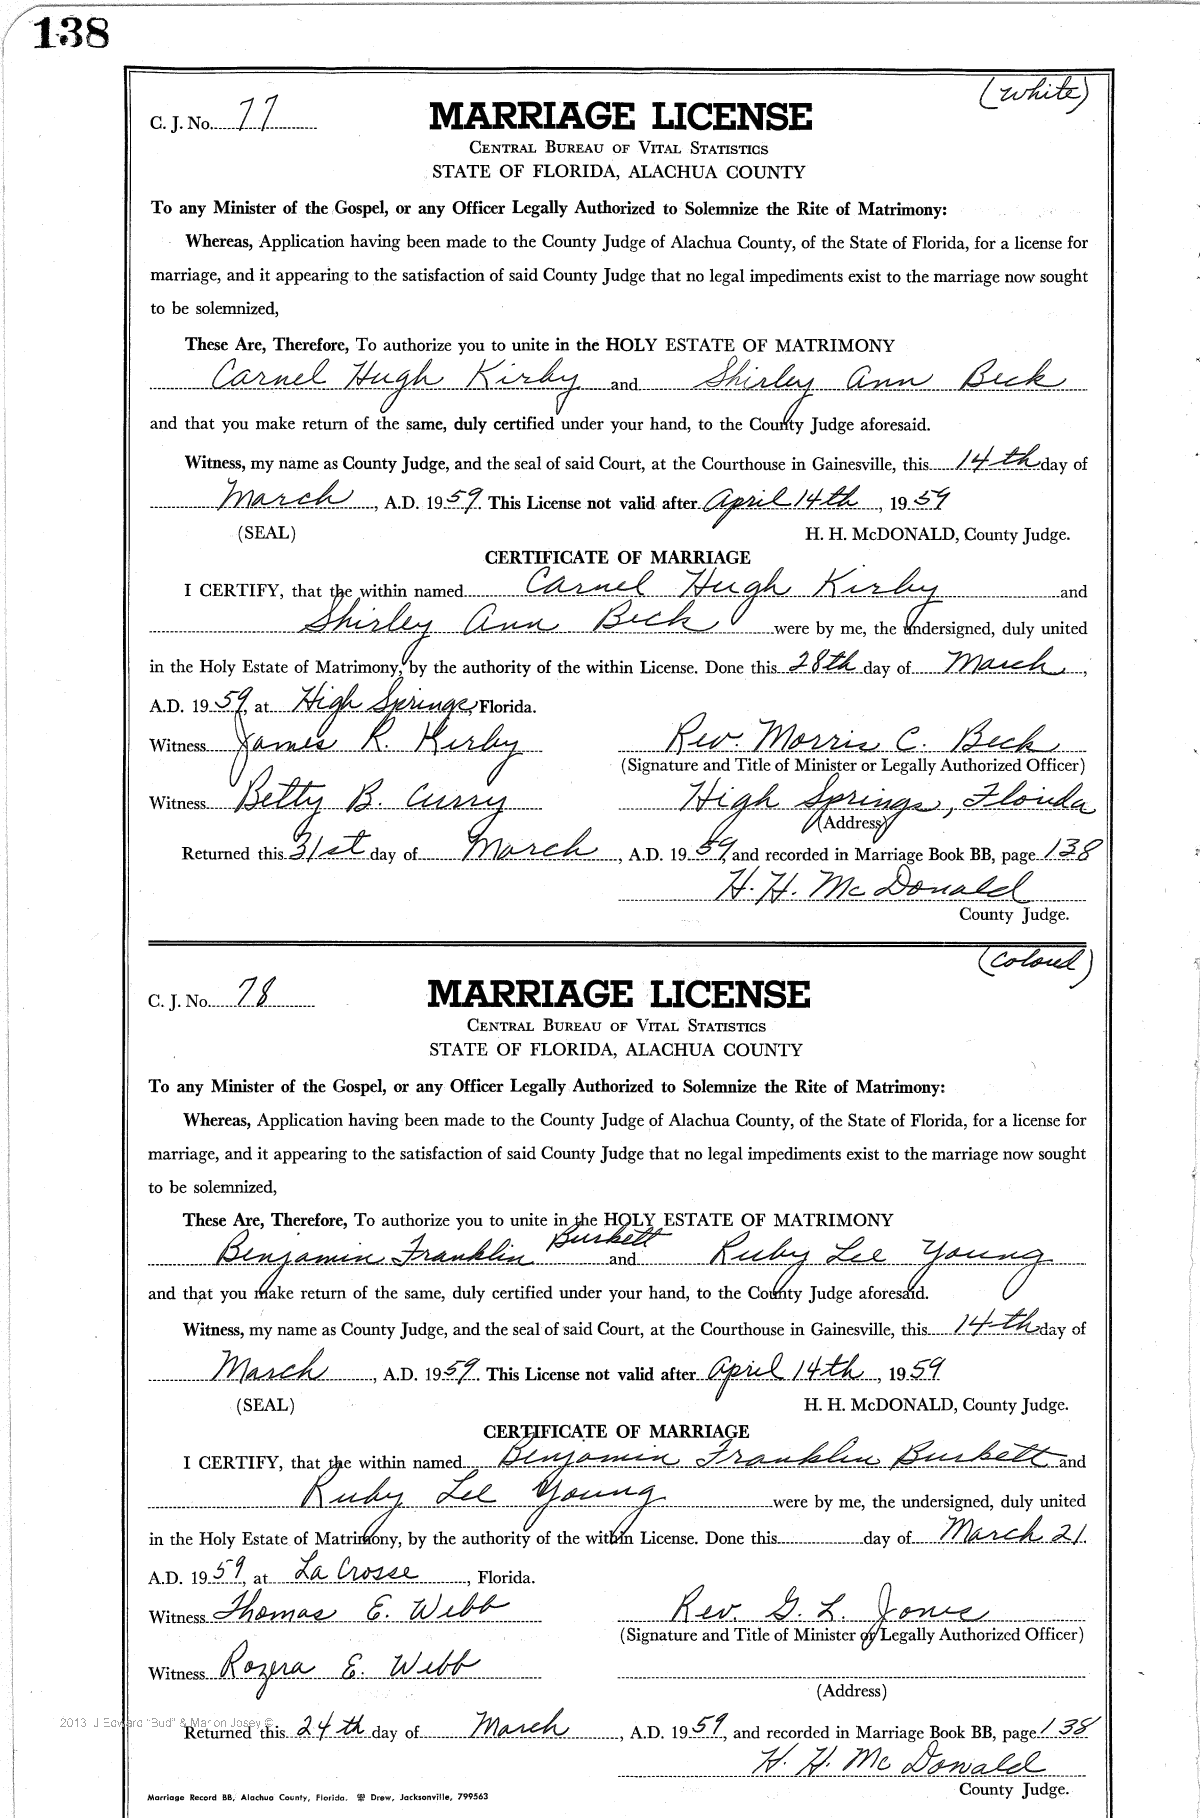 138
(White)
C. J. No. 77
MARRIAGE LICENSE
CENTRAL BUREAU OF VITAL STATISTICS
STATE OF FLORIDA, ALACHUA COUNTY
To any Minister of the Gospel, or any Officer Legally Authorized to Solemnize the Rite of Matrimony:
Whereas, Application having been made to the County Judge of Alachua County, of the State of Florida, for a license for
marriage, and it appearing to the satisfaction of said County Judge that no legal impediments exist to the marriage now sought
to be solemnized,
These Are, Therefore, To authorize you to unite in the HOLY ESTATE OF MATRIMONY
Carnel Hugh Kirby and Shirley Ann Beck
and that you make return of the same, duly certified under your hand, to the County Judge aforesaid.
Witness, my name as County Judge, and the seal of said Court, at the Courthouse in Gainesville, this 14th day of
March, A.D. 1959. This License not valid after April 14th, 1959
(SEAL) H. H. McDONALD, County Judge.
CERTIFICATE OF MARRIAGE
I CERTIFY, that the within named Carnel Hugh Kirby and
Shirley Ann Beck were by me, the undersigned, duly united
in the Holy Estate of Matrimony, by the authority of the within License. Done this 28th day of March,
A.D. 1959, at High Springs, Florida.
Witness James R. Kirby Rev. Morris C. Beck
(Signature and Title of Minister or Legally Authorized Officer)
Witness Betty B. Curry High Springs, Florida
(Address)
Returned this 31st day of March, A.D. 1959, and recorded in Marriage Book BB, page 138
H. H. McDonald
County Judge.
(Colored)
C. J. No. 78
MARRIAGE LICENSE
CENTRAL BUREAU OF VITAL STATISTICS
STATE OF FLORIDA, ALACHUA COUNTY
To any Minister of the Gospel, or any Officer Legally Authorized to Solemnize the Rite of Matrimony:
Whereas, Application having been made to the County Judge of Alachua County, of the State of Florida, for a license for
marriage, and it appearing to the satisfaction of said County Judge that no legal impediments exist to the marriage now sought
to be solemnized,
These Are, Therefore, To authorize you to unite in the HOLY ESTATE OF MATRIMONY
Benjamin Franklin Burkett and Ruby Lee Young
and that you make return of the same, duly certified under your hand, to the County Judge aforesaid.
Witness, my name as County Judge, and the seal of said Court, at the Courthouse in Gainesville, this 14th day of
March, A.D. 1959. This License not valid after April 14th, 1959
(SEAL) H. H. McDONALD, County Judge.
CERTIFICATE OF MARRIAGE
I CERTIFY, that the within named Benjamin Franklin Burkett and
Ruby Lee Young were by me, the undersigned, duly united
in the Holy Estate of Matrimony, by the authority of the within License. Done this day of March 21.
A.D. 1959, at La Crosse, Florida.
Witness Thomas E. Webb Rev. G. L. Jones
(Signature and Title of Minister or Legally Authorized Officer)
Witness Rozera E. Webb
(Address)
2013 J Edward "Bud" & Marion Josey ©
Returned this 24th day of March, A.D. 1959, and recorded in Marriage Book BB, page 138
H. H. McDonald
County Judge.
Marriage Record BB, Alachua County, Florida. Drew, Jacksonville, 799563